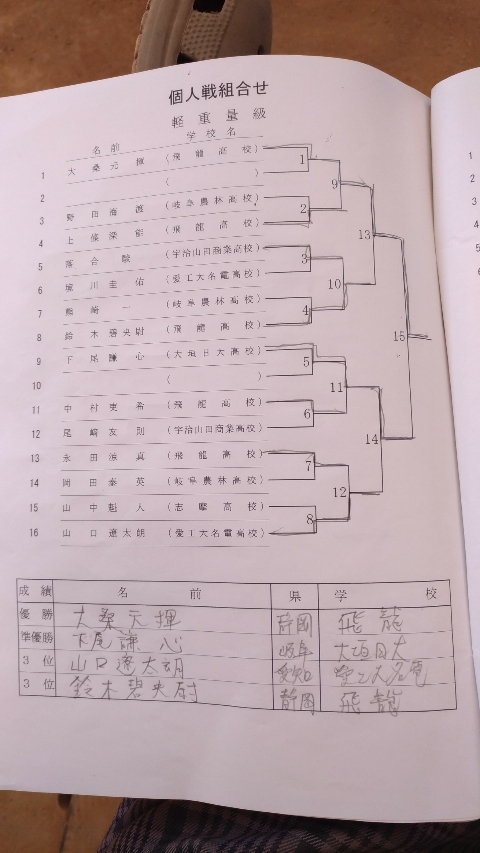 個人戦組合せ
軽重量級
名前 学校名
1 大桑元揮 (飛龍高校)
2 ( )
3 野田海渡 (岐阜農林高校)
4 上條愛能 (飛龍高校)
5 落合駿 (宇治山田商業高校)
6 堀川圭佑 (愛工大名電高校)
7 熊崎一 (岐阜農林高校)
8 鈴木碧央尉 (飛龍高校)
9 下尾謙心 (大垣日大高校)
10 ( )
11 中村東希 (飛龍高校)
12 尾﨑友則 (宇治山田商業高校)
13 永田涼真 (飛龍高校)
14 岡田泰英 (岐阜農林高校)
15 山中魁人 (志摩高校)
16 山口遼太朗 (愛工大名電高校)
1
2
3
4
5
6
7
8
9
10
11
12
13
14
15
成績 名前 県 学校
優勝 大桑元揮 静岡 飛龍
準優勝 下尾謙心 岐阜 大垣日大
3位 山口遼太朗 愛知 愛工大名電
3位 鈴木碧央尉 静岡 飛龍
1
2
3
4
5